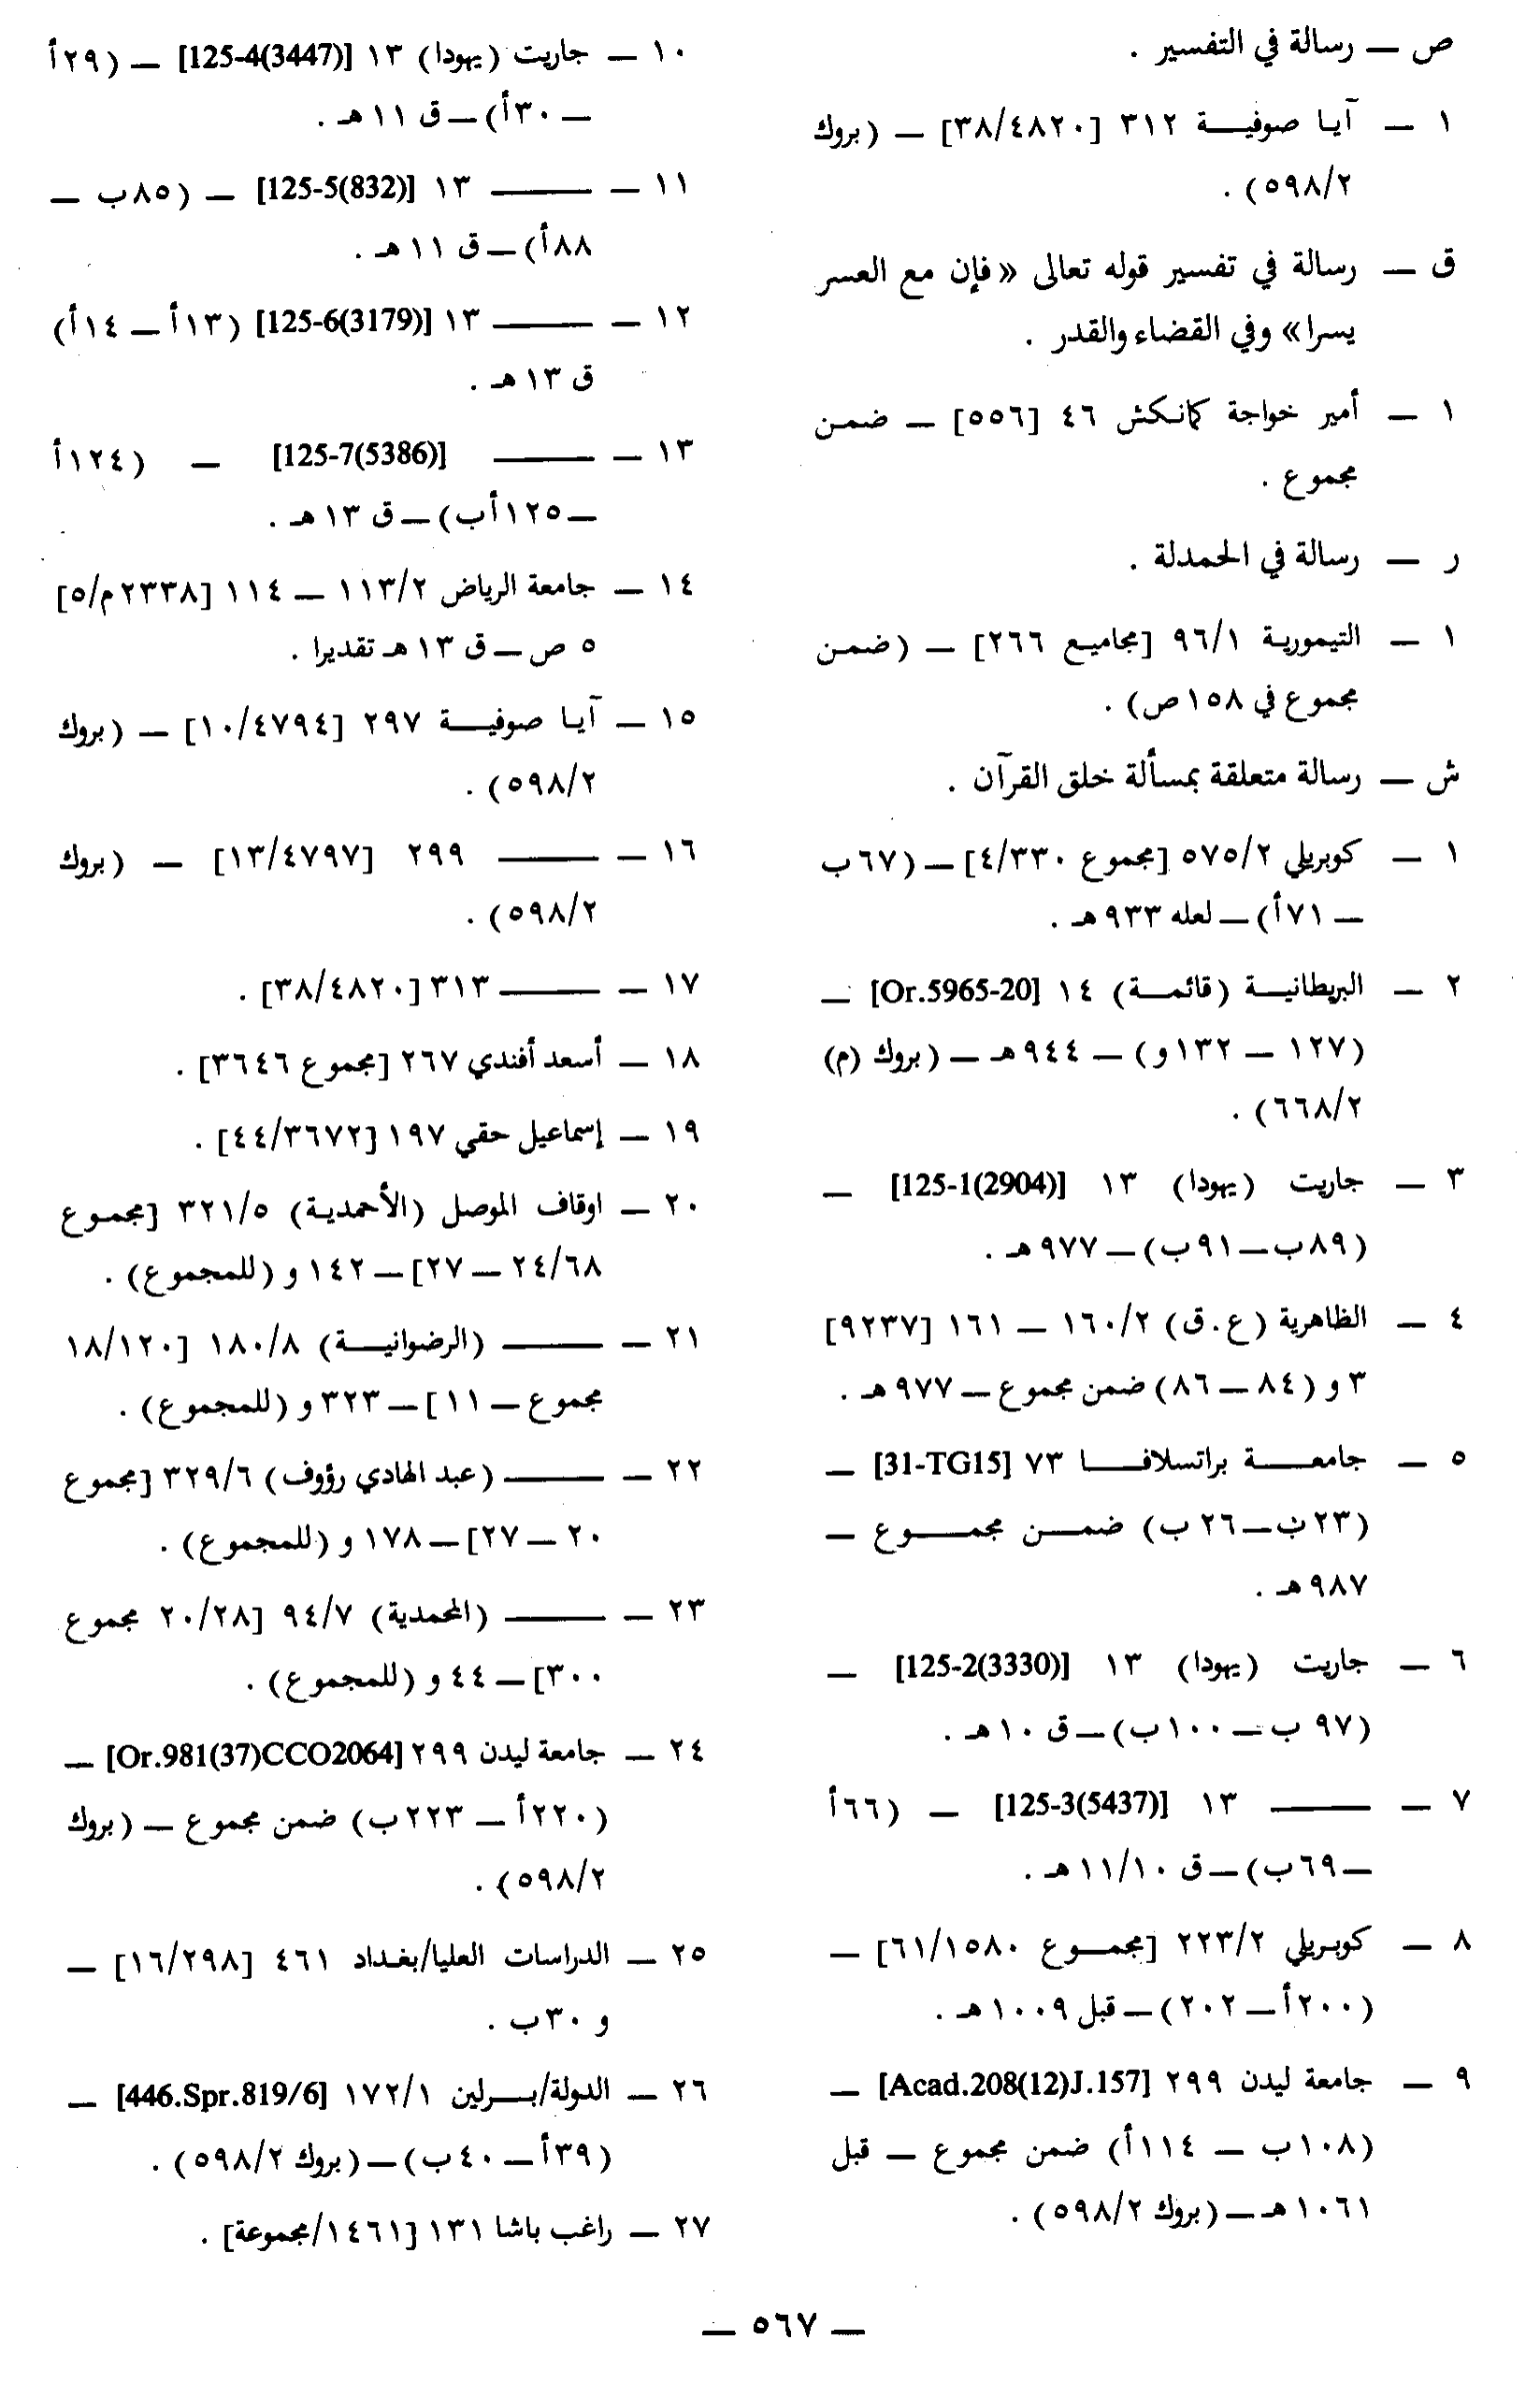 ص — رسالة في التفسير .
١ — آيا صوفيـــة ٣١٢ [٣٨/٤٨٢٠] — (بروك
٥٩٨/٢) .
ق — رسالة في تفسير قوله تعالى « فإن مع العسر
يسرا» وفي القضاء والقدر .
١ — أمير خواجة كمانكش ٤٦ [٥٥٦] — ضمن
مجموع .
ر — رسالة في الحمدلة .
١ — التيمورية ٩٦/١ [مجاميع ٢٦٦] — (ضمن
مجموع في ١٥٨ص) .
ش — رسالة متعلقة بمسألة خلق القرآن .
١ — كوبريلي ٥٧٥/٢ [مجموع ٤/٣٣٠] — (٦٧ب
— ٧١أ) — لعله ٩٣٣هـ .
٢ — البريطانيـة (قائمـة) ١٤ [Or.5965-20] —
(١٢٧ — ١٣٢و) — ٩٤٤هـ — (بروك (م)
٦٦٨/٢) .
٣ — جاريت (يهودا) ١٣ [125-1(2904)] —
(٨٩ب — ٩١ب) — ٩٧٧هـ .
٤ — الظاهرية (ع.ق) ١٦٠/٢ — ١٦١ [٩٢٣٧]
٣ و (٨٤ — ٨٦) ضمن مجموع — ٩٧٧هـ .
٥ — جامعـــة براتسلافـــا ٧٣ [31-TG15] —
(٢٣ب — ٢٦ب) ضمـــن مجمـــوع —
٩٨٧هـ .
٦ — جاريت (يهودا) ١٣ [125-2(3330)] —
(٩٧ ب — ١٠٠ب) — ق ١٠هـ .
٧ — ——— ١٣ [125-3(5437)] — (٦٦أ
— ٦٩ب) — ق ١١/١٠هـ .
٨ — كوبريلي ٢٢٣/٢ [مجمـوع ٦١/١٥٨٠] —
(٢٠٠أ — ٢٠٢) — قبل ١٠٠٩هـ .
٩ — جامعة ليدن ٢٩٩ [Acad.208(12)J.157] —
(١٠٨ب — ١١٤أ) ضمن مجموع — قبل
١٠٦١هـ — (بروك ٥٩٨/٢) .
١٠ — جاريت (يهودا) ١٣ [125-4(3447)] — (٢٩أ
— ٣٠أ) — ق ١١هـ .
١١ — ——— ١٣ [125-5(832)] — (٨٥ب —
٨٨أ) — ق ١١هـ .
١٢ — ——— ١٣ [125-6(3179)] (١٣أ — ١٤أ)
ق ١٣هـ .
١٣ — ——— [125-7(5386)] — (١٢٤أ
— ١٢٥أب) — ق ١٣هـ .
١٤ — جامعة الرياض ١١٣/٢ — ١١٤ [٢٣٣٨م/٥]
٥ ص — ق ١٣هـ تقديرا .
١٥ — آيـا صوفيـــة ٢٩٧ [١٠/٤٧٩٤] — (بروك
٥٩٨/٢) .
١٦ — ——— ٢٩٩ [١٣/٤٧٩٧] — (بروك
٥٩٨/٢) .
١٧ — ——— ٣١٣ [٣٨/٤٨٢٠] .
١٨ — أسعد أفندي ٢٦٧ [مجموع ٣٦٤٦] .
١٩ — إسماعيل حقي ١٩٧ [٤٤/٣٦٧٢] .
٢٠ — اوقاف الموصل (الأحمدية) ٣٢١/٥ [مجموع
٢٤/٦٨ — ٢٧] — ١٤٢ و (للمجموع) .
٢١ — ——— (الرضوانيـــة) ١٨٠/٨ [١٨/١٢٠
مجموع — ١١] — ٣٢٣ و (للمجموع) .
٢٢ — ——— (عبد الهادي رؤوف) ٣٢٩/٦ [مجموع
٢٠ — ٢٧] — ١٧٨ و (للمجموع) .
٢٣ — ——— (المحمدية) ٩٤/٧ [٢٠/٢٨ مجموع
٣٠٠] — ٤٤ و (للمجموع) .
٢٤ — جامعة ليدن ٢٩٩ [Or.981(37)CCO2064] —
(٢٢٠أ — ٢٢٣ب) ضمن مجموع — (بروك
٥٩٨/٢) .
٢٥ — الدراسات العليا/بغداد ٤٦١ [١٦/٢٩٨] —
و ٣٠ب .
٢٦ — الدولة/بـــرلين ١٧٢/١ [446.Spr.819/6] —
(٣٩أ — ٤٠ب) — (بروك ٥٩٨/٢) .
٢٧ — راغب باشا ١٣١ [١٤٦١/مجموعة] .
— ٥٦٧ —